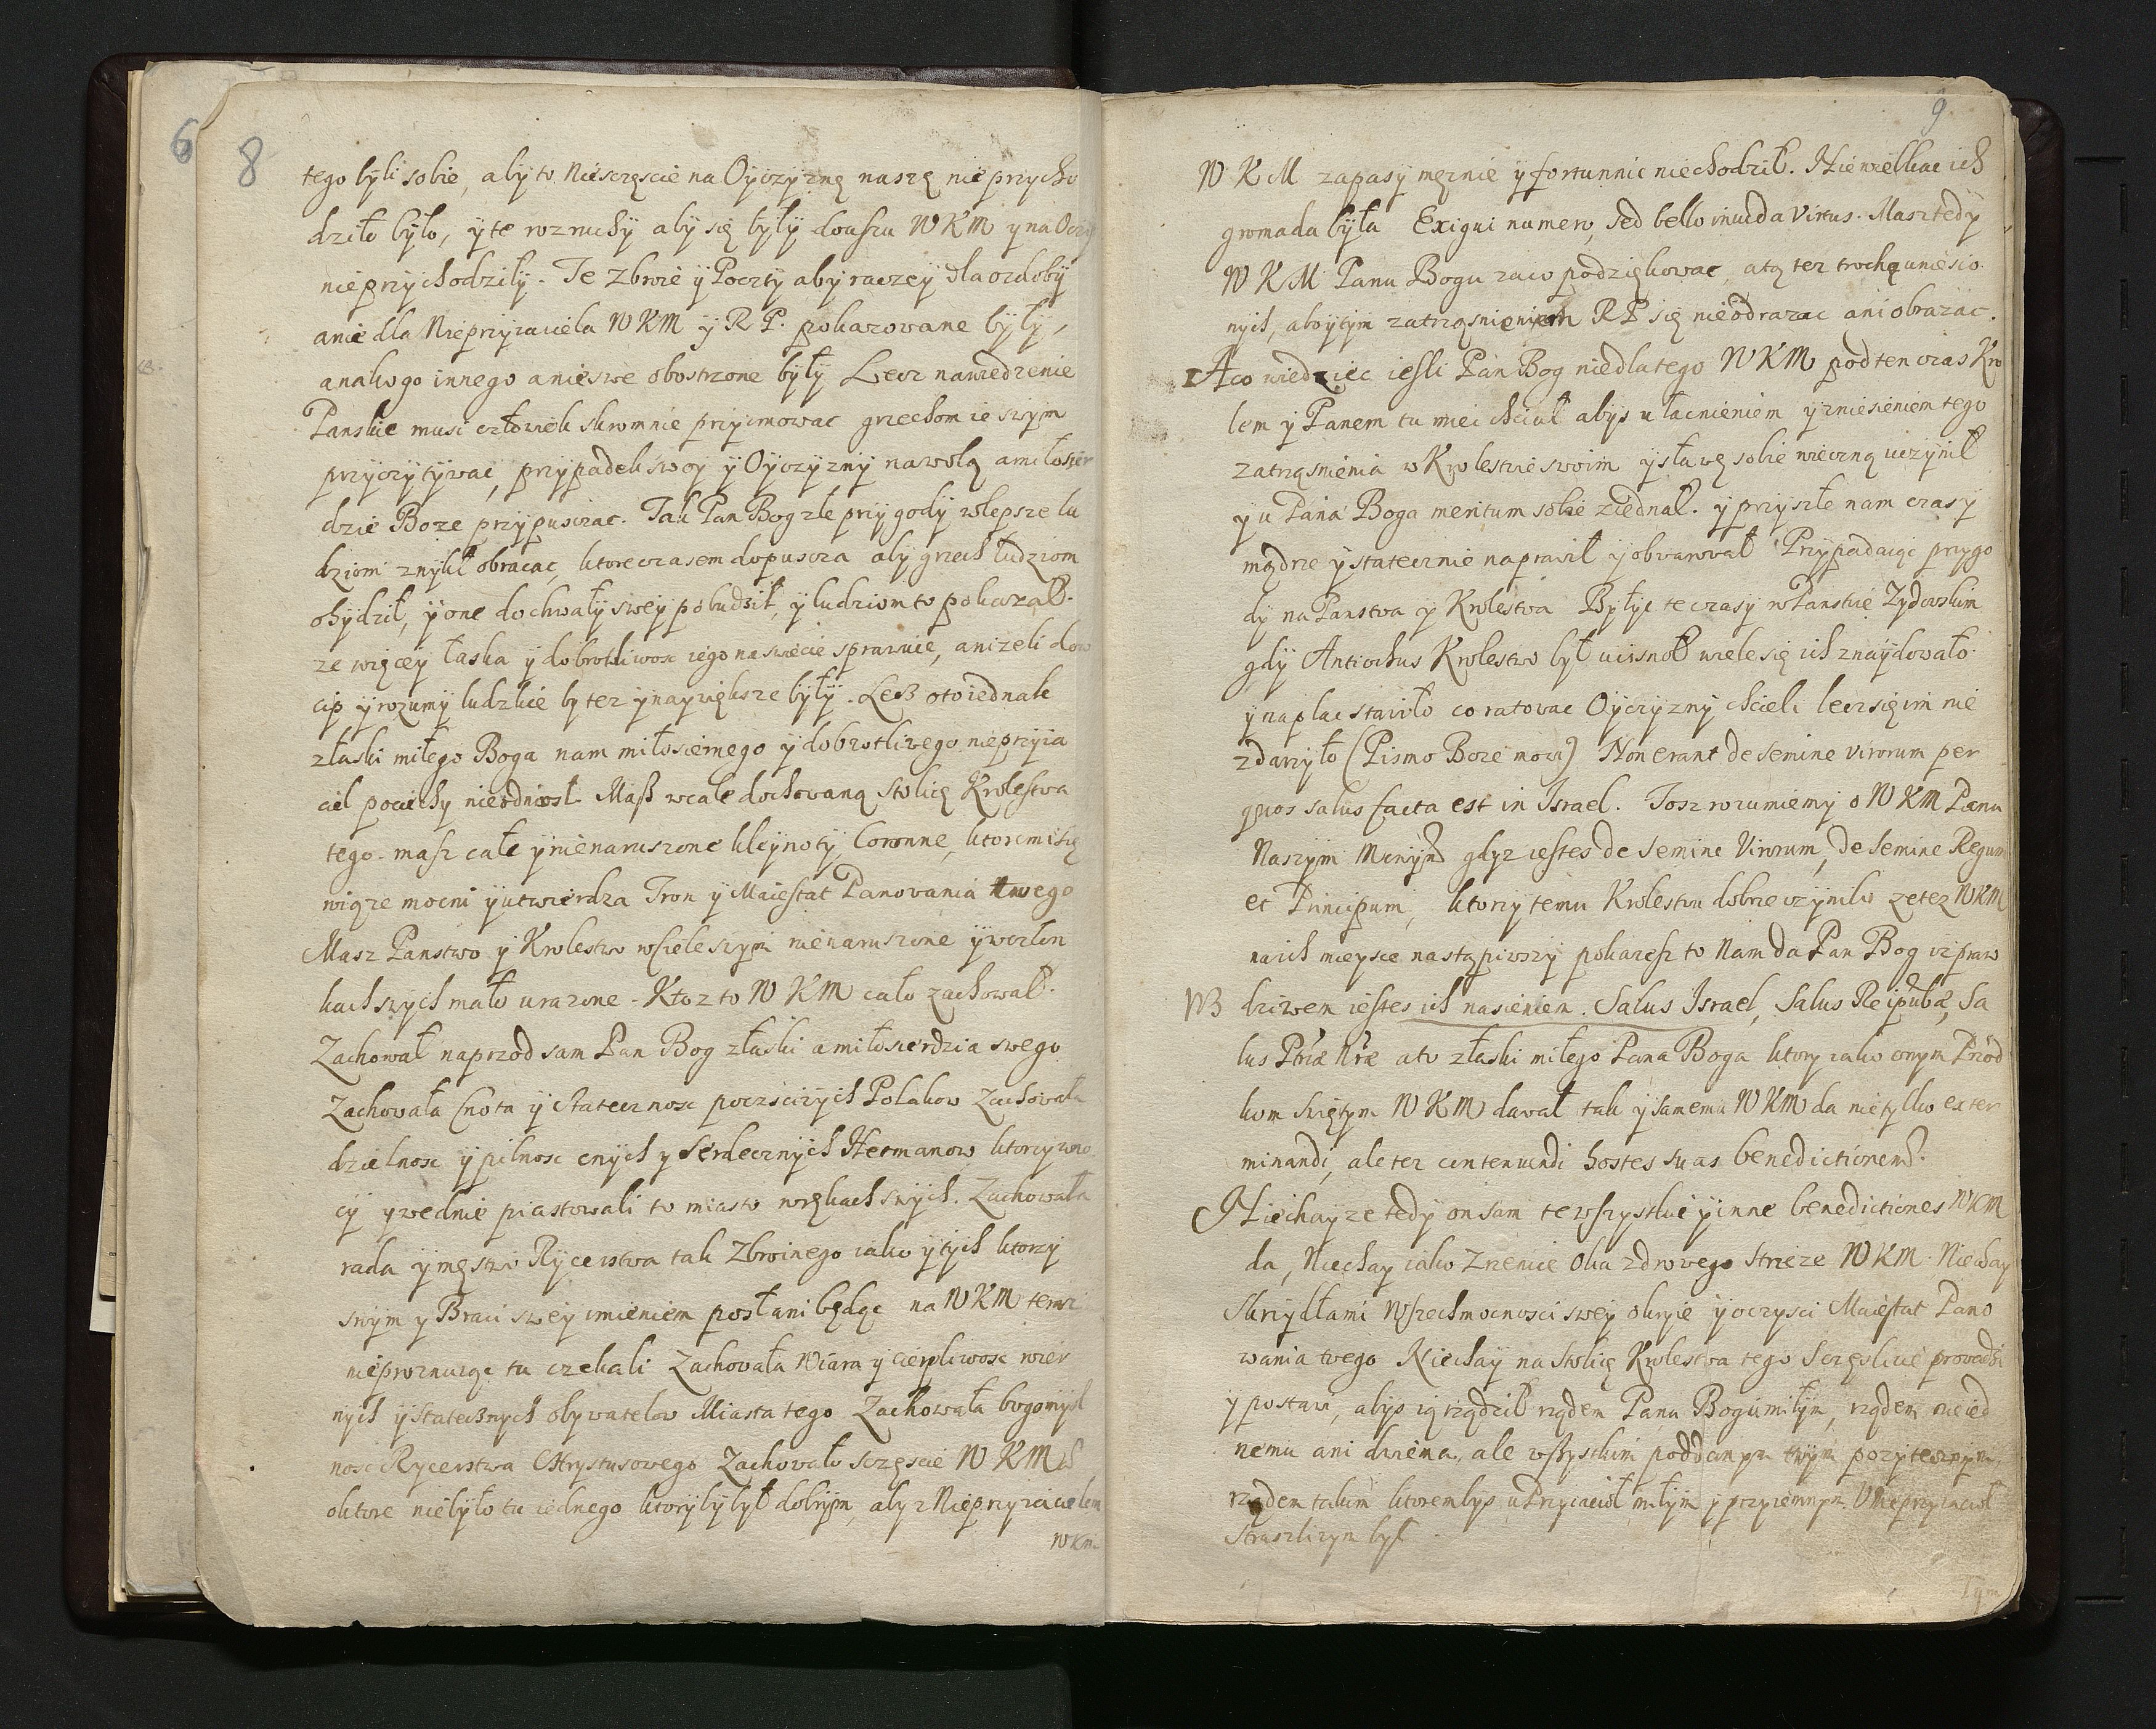 6
8
tego byli sobie, aby to Niesczęscie na Oyczyznę naszę nieprzycho
dziło było, y te rozruchy aby się były douszu WKM y na Oczy
nieprzychodziły. Te Zbroie y Poczty aby raczey dla ozdoby
anie dla Nieprzyiaciela WKM y R P. pokazowane były,
anakogo innego anieswe obostrzone były Lecz nawiedzenie
Panskie musi człowiek skromnie przyimowac grzechom ie swym
przyczytywac, przypadek swoy y Oyczyzny nawolą amiłosier
dzie Boze przypusczac. Tak Pan Bog złe przygody wlepsze lu
dziom zwykł obracac, ktore czasem dopuscza aby grzech ludziom
ohydził, y one dochwały swey pobudził, y ludziom to pokazał.
ze więcey łaska y dobrotliwosc iego na swiecie sprawuie, anizeli dow
cip y rozumy ludzkie by tez ynaywiększe były. Leß oto iednak
złaski miłego Boga nam miłosiernego y dobrotliwego nieprzyia
ciel pociechy nieodniosł Maß wcale dochowaną Stolicę Krolestwa
tego. masz całe y nienaruszone kleynoty Coronne, ktoremi się
wiąze mocni y utwierdza Tron y Maiestat Panowania twego
Masz Panstwo y Krolestwo wcieleswym nienaruszone ywczłon
kach swych mało urazone. Ktoz to W K M cało zachował.
Zachował naprzod sam Pan Bog złaski amiłosierdzia swego
Zachowała Cnota y stateczność poczsciwych Polakow Zachowała
dzielnosc y pilnosc cnych y Serdecznych Hetmanow ktorzy wno
cy ywednie piastowali to miasto wrękach swych. Zachowała
rada y męstwo Rycerstwa tak Zbroinego iako y tych ktorzy
swym y Braci swey imieniem posłani będąc na WKM
nieproznuiąc tu czekali Zachowała Wiara y cierpliwosc wier
nych y Stateßnych obywatelow Miasta tego Zachowała bogomysl
nosc Rycerstwa Chrystusowego Zachowało sczęscie W K M
oktore niebyło tu iednego ktoryby był dobrym, aby z Nieprzyiacielem
WKM
9
W K M zapasy męznie y fortunnie niechodził. Niewielkac ich
gromada była Exigui numero, sed bello inuicta Virtus. Masz tedy
W K M Panu Bogu zaco podziękowac, atą tez trochę uniesio
nych, aboytym zatrząsnieniem R P się nieodrazac ani obrazac.
Aco wiedziec iesli Pan Bog niedlatego WKM podten czas Kro
lem y Panem tu miec chciał abys ułacnieniem yzniesieniem tego
zatrząsnienia w Krolestwie swoim y sławę sobie wieczną uczynił
y u Pana Boga meritum sobie ziednał. y przyszłe nam czasy
mądrze ystatecznie naprawił y obwarował Przypadaiąc przygo
dy na Panstwa y Krolestwa Byłyc te czasy w Panstwie Zydowskim
gdy Antiochus Krolestwo był ucisnoł wiele się ich znaydowało
y naplac stawiło co ratowac Oyczyzny chcieli lecz się im nie
zdarzyło (Pismo Boze mowi) Non erant de semine virorum per
quos salus facta est in Israel. Tosz rozumiemy o WKM Panu
Naszym gdyz iestes de Semine Virorum, de Semine Regum
et Principum, ktorzy temu Krolestwu dobrze czynili zetez WKM
naich mieysce nastąpiwszy pokazesz to Nam da Pan Bog izpraw
NB dziwem iestes ich nasieniem. Salus Israel, Salus Reipubæ, Sa
lus Ptriæ Nræ ato złaski miłego Pana Boga ktory iako onym Przod
kom swiętym WKM dawał tak y samemu WKM da nietylko exter
minandi, ale tez contenundi hostes suas benedictionem.
Niechayze tedy on sam te wszystkie yinne benedictiones WKM
da, Niechay iako Zrenice Oka zdrowego strzeze WKM. Niechay
Skrzydłami Wszechmocnosci swey okryie y oczysci Maiestat Pano
wania twego Niechay na Stolicę Krolestwa tego Sczęsliwie prowadzi
y postawi, abys ią rządził rządem Panu Bogu miłym, rządem nieied
nemu ani dwiema, ale wßystkim poddanym twym pozytecznym,
rządem takim ktorembys u Przyiacioł miłym y przyiemnym. U Nieprzyiacioł
Straszliwym był.
Tym